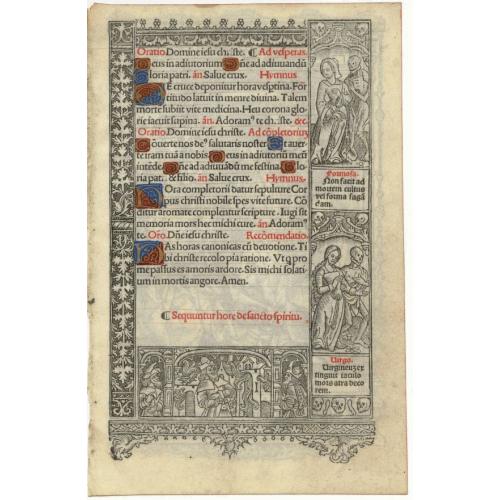 Oratio. Domine iesu christe. ¶ Ad vesperas.
Deus in adiutorium Dñe ad adiuuandũ
Gloria patri. añ Salue crux. Hymnus
DE cruce deponitur hora vesptina. For
titudo latuit in mente diuina. Talem
mortem subiit vite medicina. Heu corona glo
rie iacuit supina. añ. Adoram⁹ te christe. &c.
Oratio. Domine iesu christe. Ad cõpletoriũ
Conuerte nos de⁹ salutaris noster Et auer
te iram tuã a nobis Deus in adiutoriũ meũ
intẽde Dñe ad adiuuãdũ me festina Glo
ria pat. & filio. añ Salue crux. Hymnus.
HOra completorii datur sepulture Cor
pus christi nobile spes vite future. Cõ
ditur aromate complentur scripture. Iugi sit
memoria mors hec michi cure. añ Adoram⁹
te. Oro. Dñe iesu christe. Recõmendatio.
HAs horas canonicas cũ deuotione. Ti
bi christe recolo pia ratione. Vt q pro
me passus es amoris ardore. Sis michi solati
um in mortis angore. Amen.
¶ Sequuntur hore de sancto spiritu.
Formosa.
Non facit ad
mortem cultus
vel forma fugã
dam.
Virgo.
Virgineuz ex
tinguit iaculo
mors atra deco
rem.